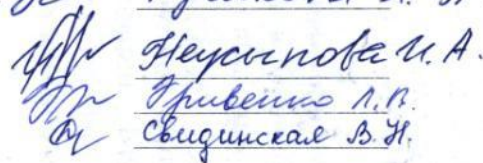 Неусыпова И. А.
Гривенко Л. В.
Свидинская В. Н.